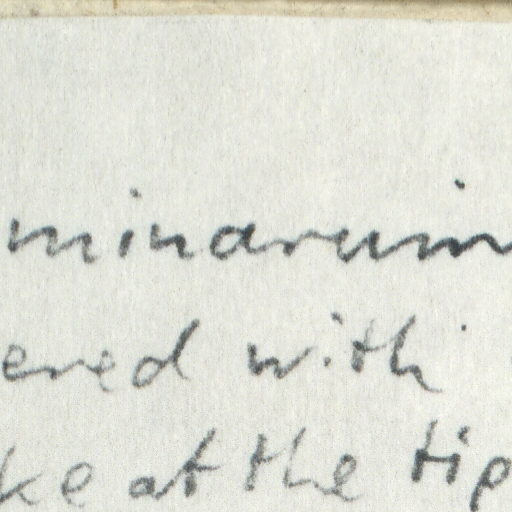 minarum
ered with
ke at the tip